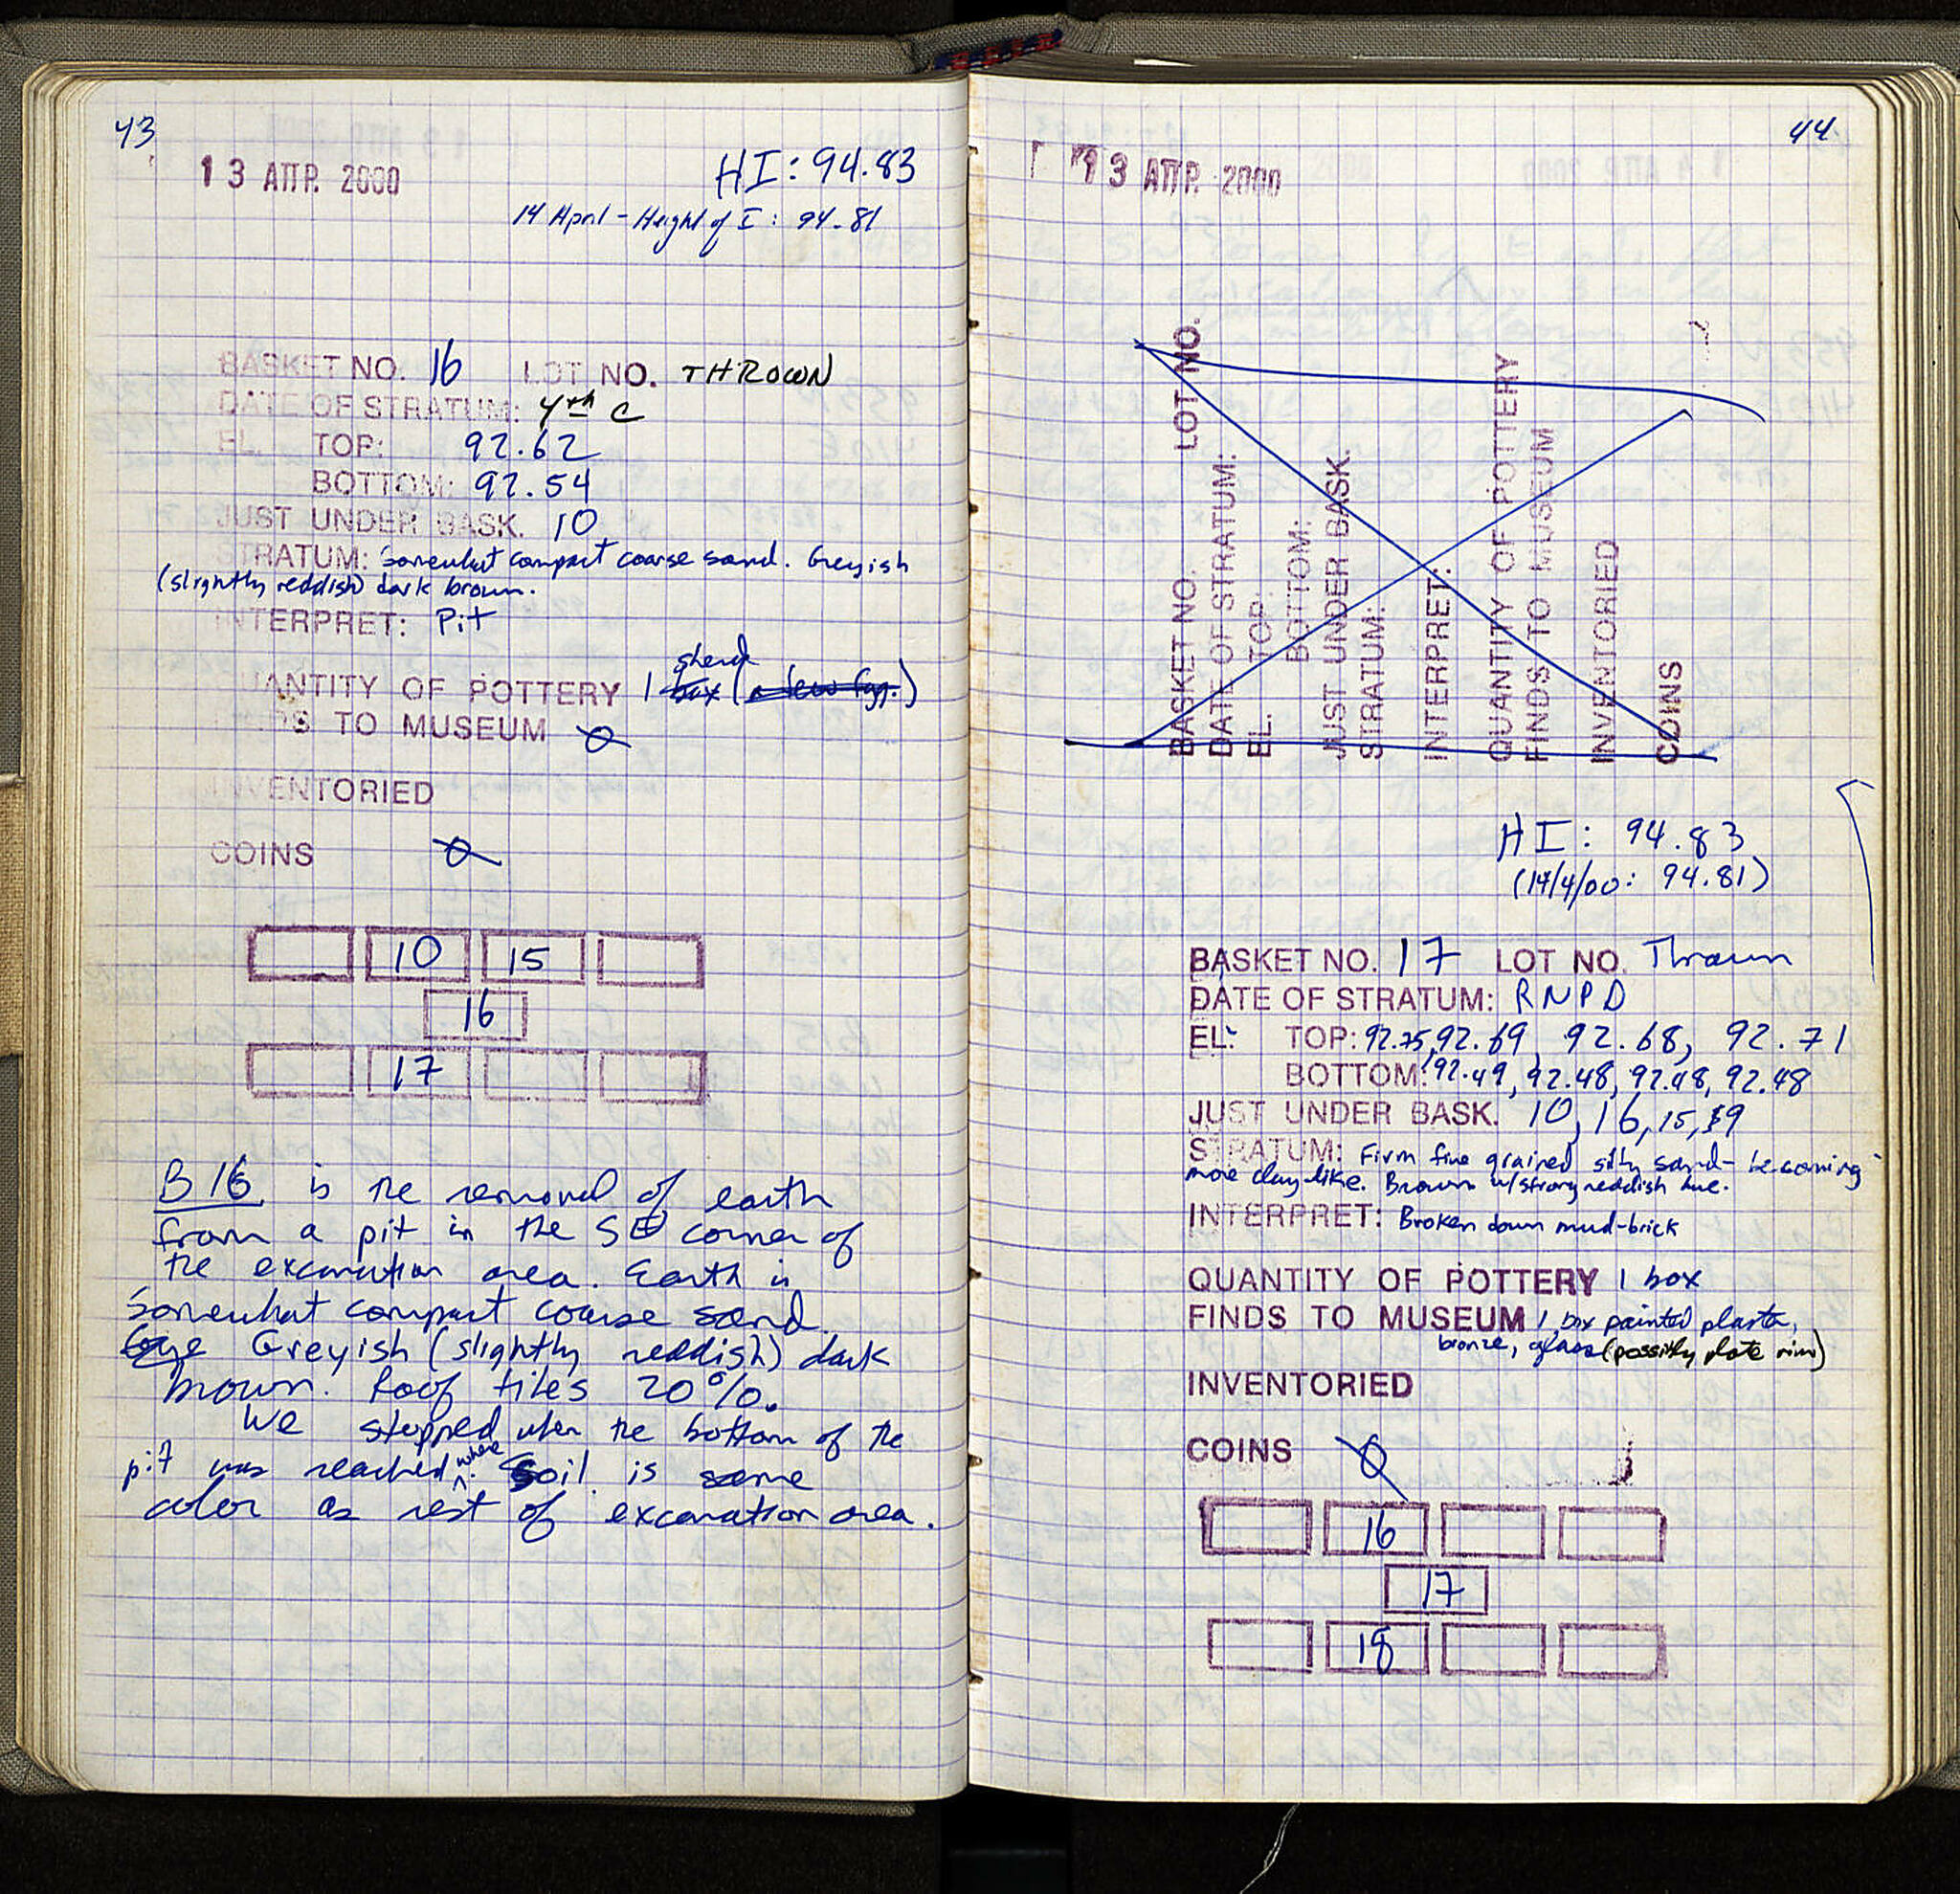 43
13 ΑΠΡ. 2000
HI: 94.83
14 April - Height of I: 94.81
BASKET NO. 16 LOT NO. THROWN
DATE OF STRATUM: 4th C
EL. TOP: 92.62
BOTTOM: 92.54
JUST UNDER BASK. 10
STRATUM: Somewhat compact coarse sand. Greyish
(slightly reddish) dark brown.
INTERPRET: Pit
QUANTITY OF POTTERY 1 box sherd (a few frag.)
FINDS TO MUSEUM 0
INVENTORIED
COINS 0
10 15
16
17
B 16 is the removal of earth
from a pit in the SE corner of
the excavation area. Earth is
somewhat compact coarse sand.
Greyish (slightly reddish) dark
brown. Roof tiles 20%.
We stopped when the bottom of the
pit was reached where soil is same
color as rest of excavation area.
44
13 ΑΠΡ. 2000
BASKET NO. LOT NO.
DATE OF STRATUM:
EL. TOP:
BOTTOM:
JUST UNDER BASK.
STRATUM:
INTERPRET:
QUANTITY OF POTTERY
FINDS TO MUSEUM
INVENTORIED
COINS
HI: 94.83
(14/4/00: 94.81)
BASKET NO. 17 LOT NO. Thrown
DATE OF STRATUM: RNPD
EL: TOP: 92.75, 92.69, 92.68, 92.71
BOTTOM: 92.49, 92.48, 92.48, 92.48
JUST UNDER BASK. 10, 16, 15, 9
STRATUM: Firm fine grained silty sand - becoming
more clay-like. Brown w/strong reddish hue.
INTERPRET: Broken down mud-brick
QUANTITY OF POTTERY 1 box
FINDS TO MUSEUM 1 box painted plaster,
bronze, glass (possibly plate rim)
INVENTORIED
COINS 0
16
17
18